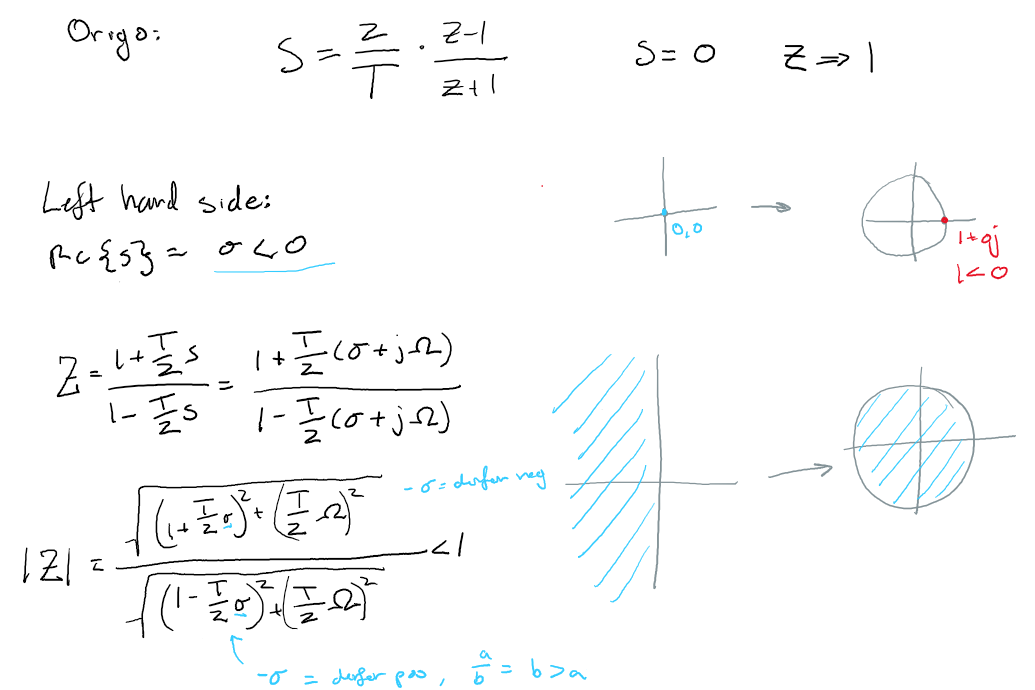 Origo:
S = 2/T · z-1/z+1
S = 0   Z => 1
0,0
1+0j
1<0
Left hand side:
Re{s} = σ < 0
Z = 1+T/2 s / 1-T/2 s = 1+T/2(σ+jΩ) / 1-T/2(σ+jΩ)
|Z| = √((1+T/2 σ)²+(T/2 Ω)²) / √((1-T/2 σ)²+(T/2 Ω)²) < 1
-σ = derfor neg
-σ = derfor pos, a/b = b>a